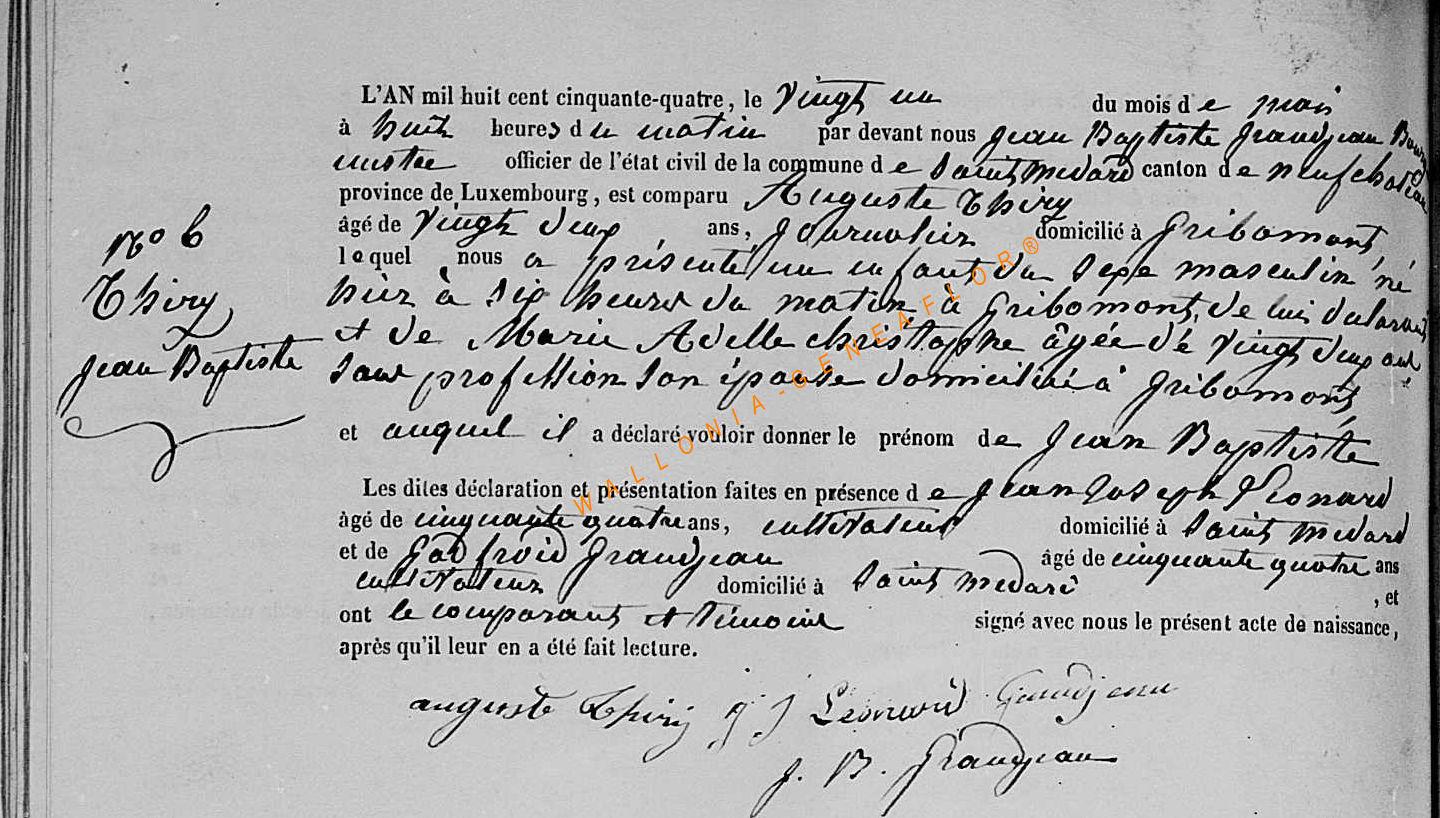 L'AN mil huit cent cinquante-quatre, le Vingt un du mois de mai
à huit heures du matin par devant nous Jean Baptiste Grandjean Bourg
mestre officier de l'état civil de la commune de Saint Medard canton de neufchateau
province de Luxembourg, est comparu Auguste Thiry
âgé de Vingt deux ans, Journalier domicilié à Gribomont
lequel nous a présenté un enfant du sexe masculin né
hier à six heures du matin à Gribomont, de lui déclarant
et de Marie Adelle christophe âgée de vingt deux ans
sans profession son épouse domiciliée à Gribomont
et auquel il a déclaré vouloir donner le prénom de Jean Baptiste
Les dites déclaration et présentation faites en présence de Jean Joseph Leonard
âgé de cinquante quatre ans, cultivateur domicilié à Saint medard
et de Godfroid Grandjean âgé de cinquante quatre ans
cultivateur domicilié à Saint medard , et
ont le comparant et témoins signé avec nous le présent acte de naissance,
après qu'il leur en a été fait lecture.
auguste Thiry J J Leonard Grandjean
J. B. Grandjean
No 6
Thiry
Jean Baptiste
WALLONIA-GENEAFLOR®